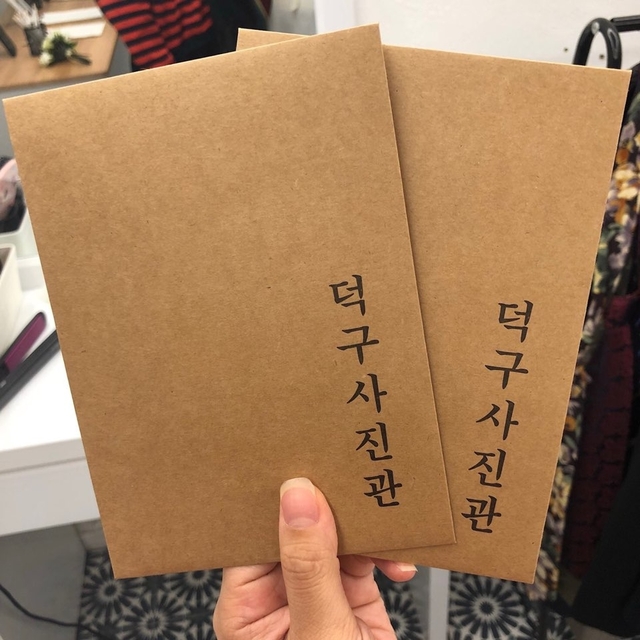 덕구사진관
덕구사진관